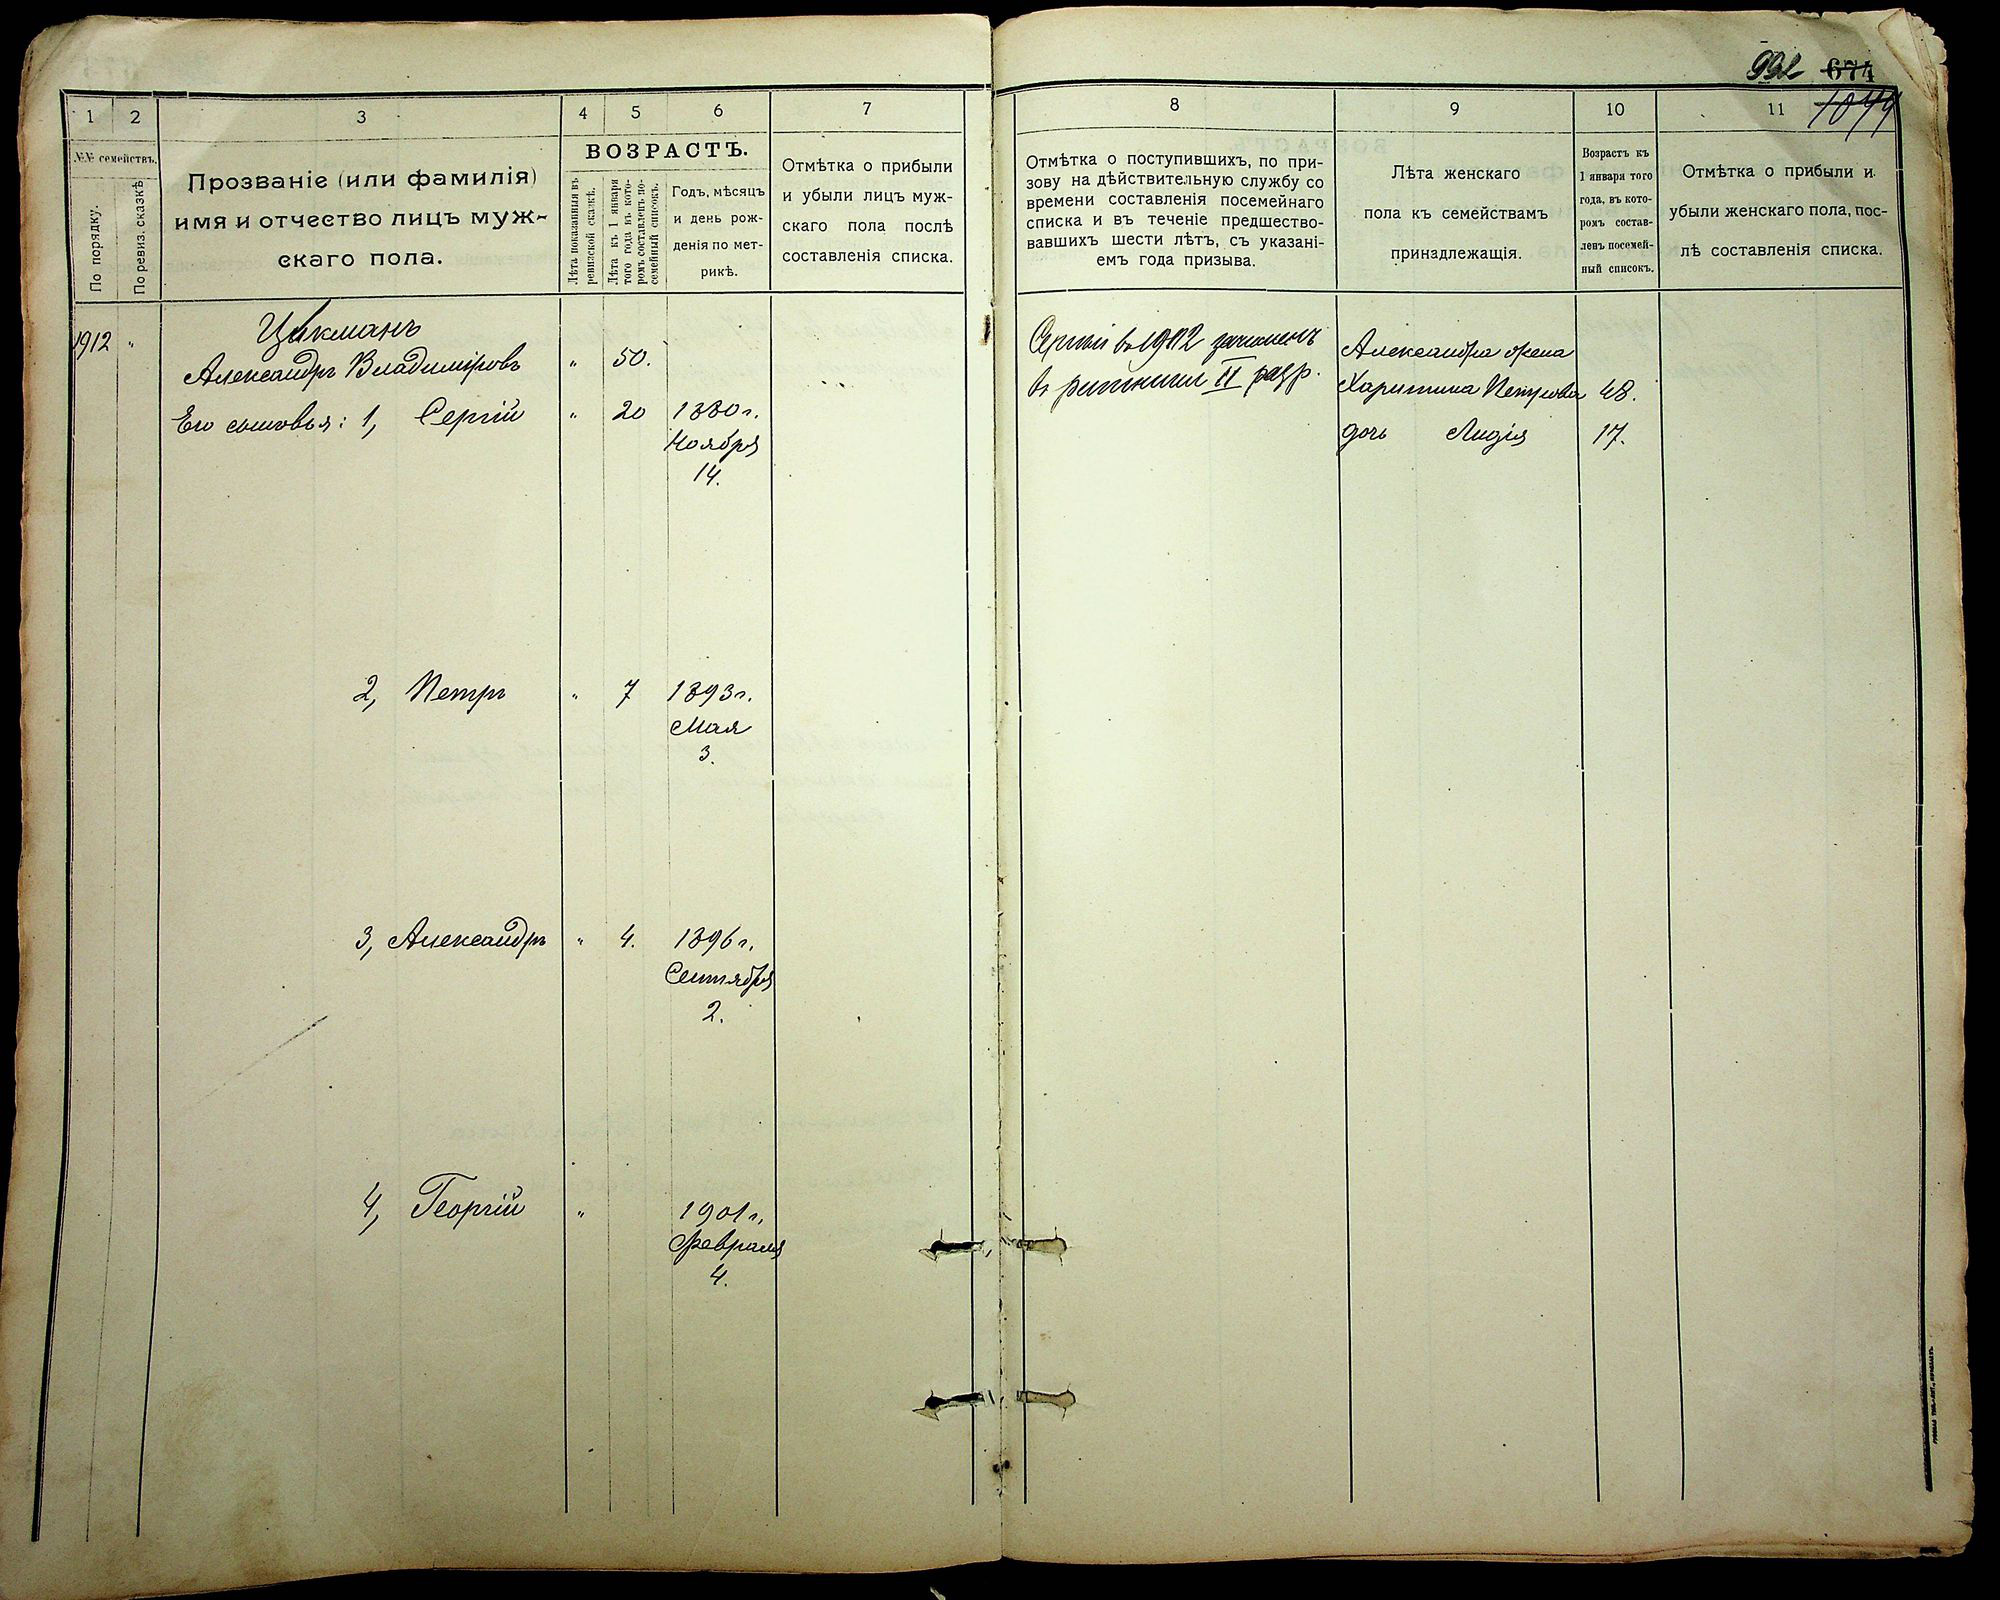 992 674
1044
1
2
3
4
5
6
7
8
9
10
11
№№ семействъ.
По порядку.
По ревиз. сказкѣ
Прозваніе (или фамилія)
имя и отчество лицъ муж-
скаго пола.
ВОЗРАСТЪ.
Лѣта показанныя въ
ревизской сказкѣ.
Лѣта къ 1 января
того года въ кото-
ромъ составленъ по-
семейный списокъ.
Годъ, мѣсяцъ
и день рож-
денія по мет-
рикѣ.
Отмѣтка о прибыли
и убыли лицъ муж-
скаго пола послѣ
составленія списка.
Отмѣтка о поступившихъ, по при-
зову на дѣйствительную службу со
времени составленія посемейнаго
списка и въ теченіе предшество-
вавшихъ шести лѣтъ, съ указані-
емъ года призыва.
Лѣта женскаго
пола къ семействамъ
принадлежащія.
Возрастъ къ
1 января того
года, въ кото-
ромъ состав-
ленъ посемей-
ный списокъ.
Отмѣтка о прибыли и
убыли женскаго пола, пос-
лѣ составленія списка.
1912 "
Цикманъ
Александръ Владиміровъ " 50.
Его сыновья: 1, Сергій " 20 1880 г.
Ноября
14.
2, Петръ " 7 1893 г.
Мая
3.
3, Александръ " 4. 1896 г.
Сентября
2.
4, Георгій " 1901 г.
Февраля
4.
Сергій въ 1902 зачисленъ
въ ратники II разр.
Александра жена
Харитина Петрова 48.
дочь Лидія 17.